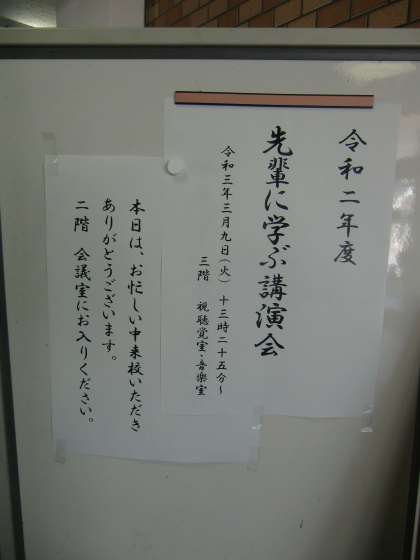 令和二年度
先輩に学ぶ講演会
令和三年三月九日(火) 十三時二十五分~
三階 視聴覚室・音楽室
本日は、お忙しい中来校いただき
ありがとうございます。
二階 会議室にお入りください。